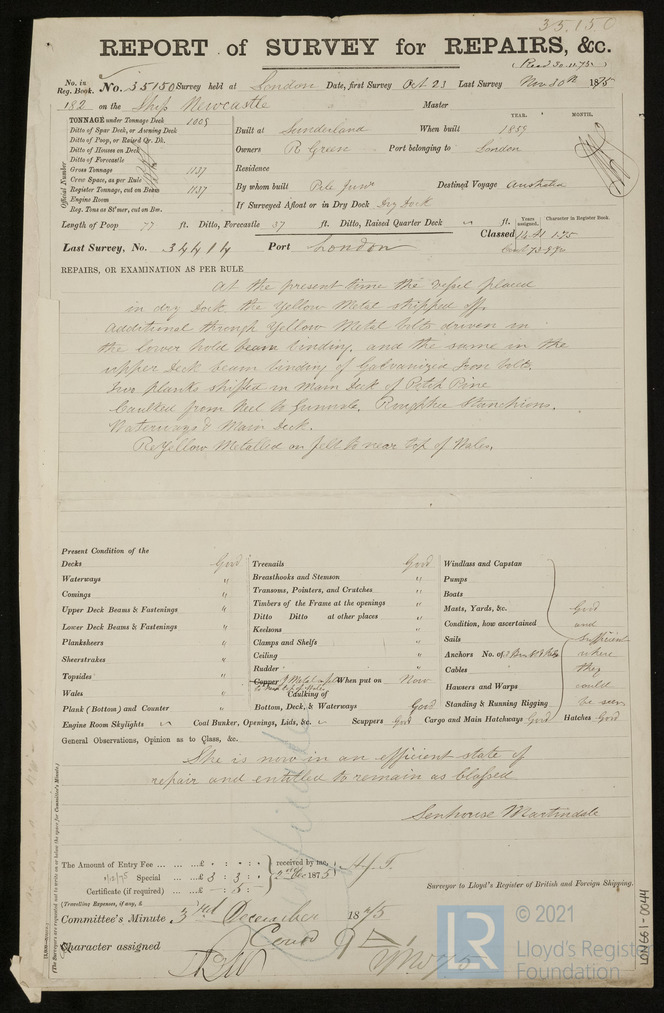 35150
REPORT of SURVEY for REPAIRS, &c.
(Read 30.11.75)
No. in Reg. Book. No. 35150 Survey held at London Date, first Survey Oct 23 Last Survey Nov 30th 1875
182 on the Ship Newcastle Master
TONNAGE under Tonnage Deck 1009
Ditto of Spar Deck, or Awning Deck
Ditto of Poop, or Raised Qr. Dk.
Ditto of Houses on Deck
Ditto of Forecastle
Gross Tonnage 1137
Crew Space, as per Rule
Register Tonnage, cut on Beam 1137
Engine Room
Reg. Tons as St'mer, cut on Bm.
Official Number
YEAR. MONTH.
Built at Sunderland When built 1859
Owners R Green Port belonging to London
Residence
By whom built Pile Junr Destined Voyage Australia
If Surveyed Afloat or in Dry Dock Dry Dock
Length of Poop 77 ft. Ditto, Forecastle 37 ft. Ditto, Raised Quarter Deck ft.
Years assigned. Character in Register Book.
Last Survey, No. 34414 Port London Classed
REPAIRS, OR EXAMINATION AS PER RULE
At the present time the vessel placed
in dry dock the Yellow Metal stripped off.
Additional through Yellow Metal bolts driven in
the lower hold beam binding, and the same in the
upper Deck beam binding of Galvanized Iron bolts.
Two planks shifted in Main Deck of Pitch Pine
Caulked from Keel to Gunnale. Roughtree Stanchions.
Waterways & Main Deck.
ReYellow Metalled on felt to near top of Wales.
Present Condition of the
Decks Good
Waterways "
Comings "
Upper Deck Beams & Fastenings "
Lower Deck Beams & Fastenings "
Planksheers "
Sheerstrakes "
Topsides "
Wales "
Plank (Bottom) and Counter "
Treenails Good
Breasthooks and Stemson "
Transoms, Pointers, and Crutches "
Timbers of the Frame at the openings "
Ditto Ditto at other places "
Keelsons "
Clamps and Shelfs "
Ceiling "
Rudder "
Copper Y Metal on felt When put on Now
to near top of Wales
Caulking of
Bottom, Deck, & Waterways Good
Windlass and Capstan
Pumps
Boats
Masts, Yards, &c.
Condition, how ascertained
Sails
Anchors No. of
Cables
Hausers and Warps
Standing & Running Rigging
Good
and
sufficient
where
they
could
be seen
Engine Room Skylights Coal Bunker, Openings, Lids, &c. Scuppers Good Cargo and Main Hatchways Good Hatches Good
General Observations, Opinion as to Class, &c.
She is now in an efficient state of
repair and entitled to remain as Classed
Senhouse Martindale
The Amount of Entry Fee ... ... ... £ : : received by me,
Special ... £ 3 : 3 : 2nd Dec 1875
Certificate (if required) ... - 5 : -
(Travelling Expenses, if any, £
Surveyor to Lloyd's Register of British and Foreign Shipping.
Committee's Minute 3rd December 1875
Character assigned
(The Surveyors are requested not to write on or below the space for Committee's Minute.)
LON661-0044
LR
© 2021
Lloyd's Register
Foundation